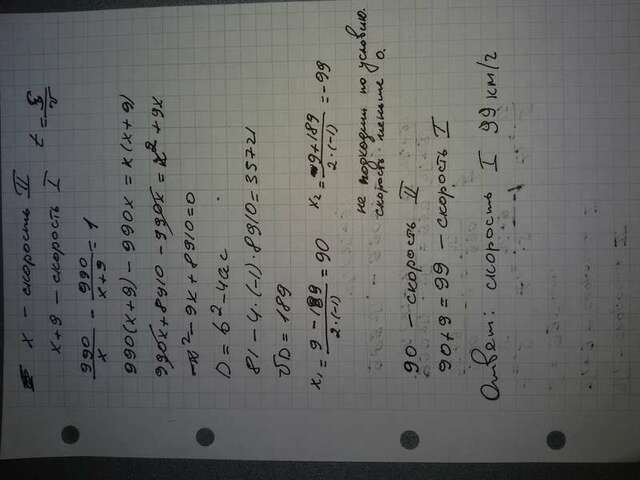 x - скорость II
x+9 - скорость I t = S/v
990/x - 990/x+9 = 1
990(x+9) - 990x = x(x+9)
990x + 8910 - 990x = x² + 9x
-x² - 9x + 8910 = 0
D = b² - 4ac
81 - 4·(-1)·8910 = 35721
√D = 189
x₁ = 9 - 189/2·(-1) = 90 x₂ = 9 + 189/2·(-1) = -99
не подходит по условию.
скорость меньше 0.
90 - скорость II
90+9 = 99 - скорость I
Ответ: скорость I 99 км/г